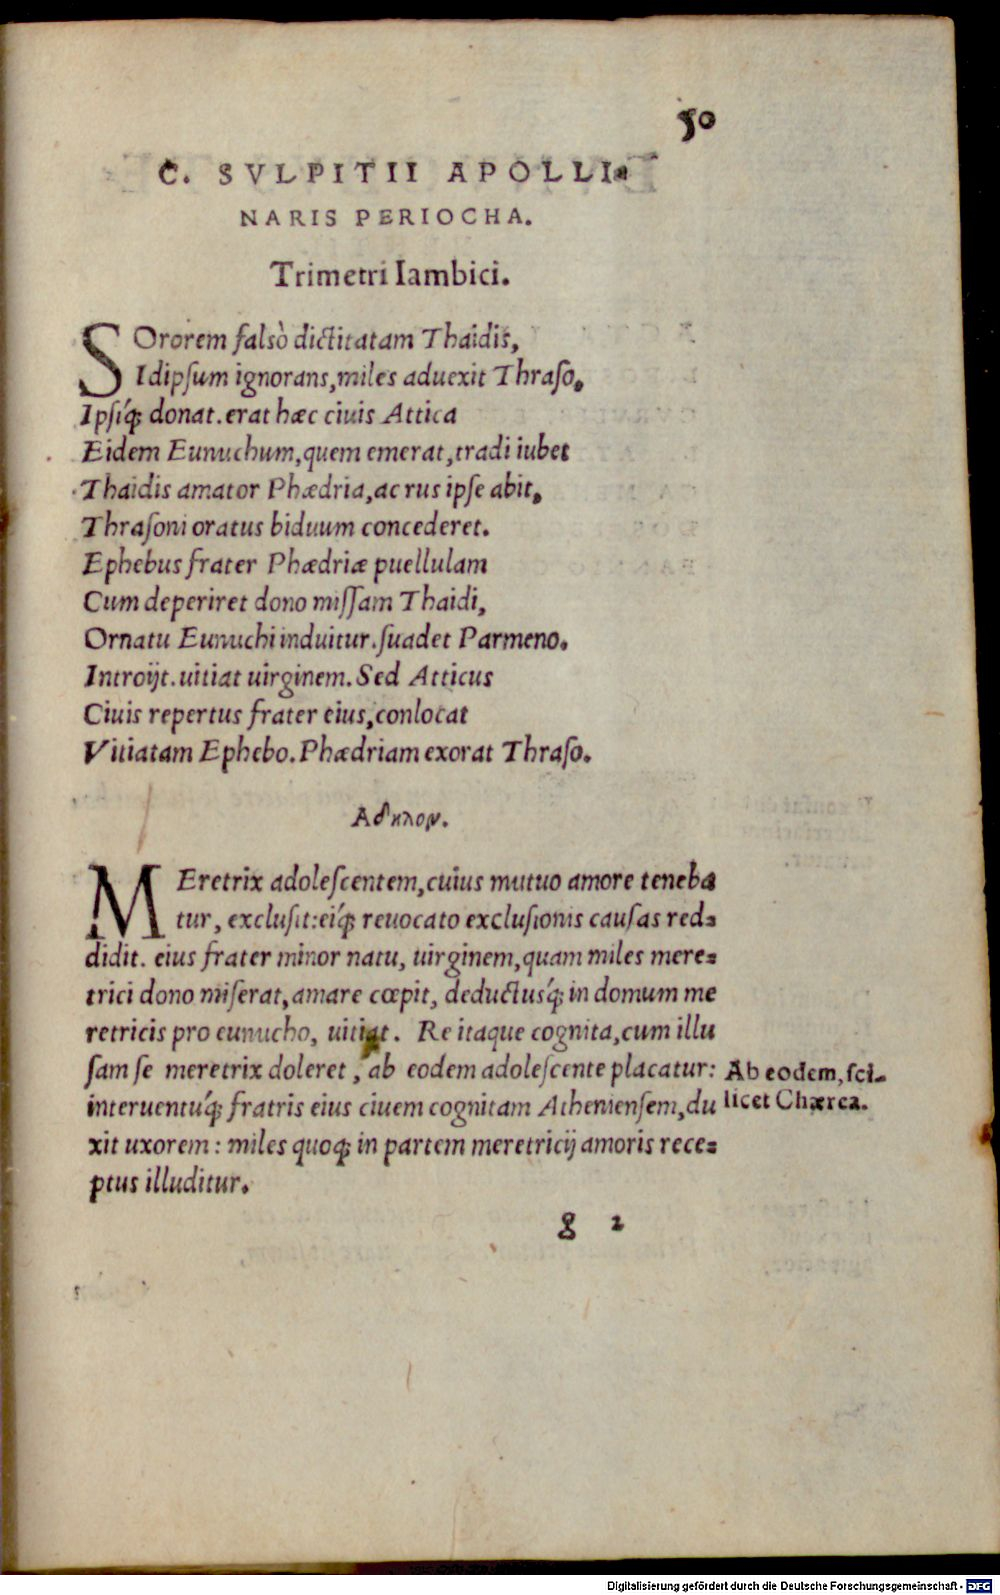 50
C. SVLPITII APOLLI-
NARIS PERIOCHA.
Trimetri Iambici.
SOrorem falsò dictitatam Thaidis,
Idipsum ignorans, miles aduexit Thraso,
Ipsiq́; donat. erat hæc ciuis Attica
Eidem Eunuchum, quem emerat, tradi iubet
Thaidis amator Phædria, ac rus ipse abit,
Thrasoni oratus biduum concederet.
Ephebus frater Phædriæ puellulam
Cum deperiret dono missam Thaidi,
Ornatu Eunuchi induitur. suadet Parmeno.
Introijt. uitiat uirginem. Sed Atticus
Ciuis repertus frater eius, conlocat
Vitiatam Ephebo. Phædriam exorat Thraso.
Αδηλον.
MEretrix adolescentem, cuius mutuo amore teneba
tur, exclusit: eiq́; reuocato exclusionis causas red-
didit. eius frater minor natu, uirginem, quam miles mere-
trici dono miserat, amare cœpit, deductusq́; in domum me
retricis pro eunucho, uitiat. Re itaque cognita, cum illu
sam se meretrix doleret, ab eodem adolescente placatur:
interuentuq́; fratris eius ciuem cognitam Atheniensem, du
xit uxorem: miles quoq; in partem meretricij amoris rece-
ptus illuditur.
Ab eodem, sci-
licet Chærea.
g 2
Digitalisierung gefördert durch die Deutsche Forschungsgemeinschaft - DFG